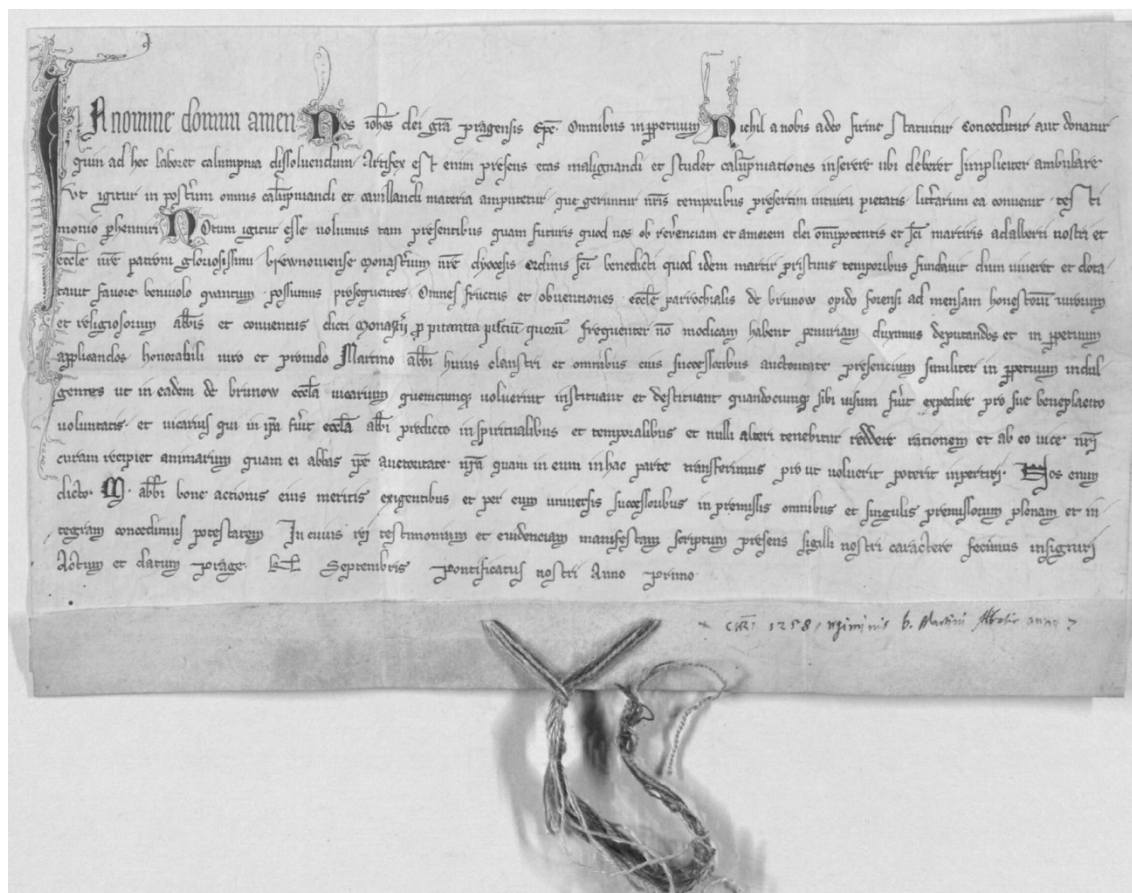 In nomine domini amen Nos ioh̅es dei gr̅a pragensis ep̅c. Omnibus inp̲petuum Nichil a nobis adeo firme statuitur conceditur aut donatur
quin ad hoc laboret calumpnia dissoluendum. Artifex est enim presens etas malignandi et studet calu̅pniationes inserere ubi deberet simpliciter ambulare
Ut igitur in post̓um omnis calu̅pniandi et cauillandi materia amputetur que geruntur nr̅is temporibus presertim intuitu pietatis litt̓arum ea conuenit testi
monio p̲hennari Notum igitur esse volumus tam presentibus quam futuris quod nos ob reu̓enciam et amorem dei om̅ipotentis et sc̅i martiris adalberti nostri et
eccl̅e nr̅e patroni gloriosissimi brewnouiense monast̓ium nr̅e dyocesis ordinis sc̅i benedicti quod idem martir pristinis temporibus fundauit dum viueret et dota
uit fauore beniuolo quantum possumus prosequentes Omnes fructus et obuentiones eccl̅e parrochialis de brunow opido forensi ad mensam honestorum uirorum
et religiosorum abb̅is et conuentus dicti monast̓ij p̲ pitantia pisciu̅ quoru̅ frequenter no̅ modicam habent penuriam duximus deputandos et in p̲petuum
applicandos honorabili uiro et prouido Martino abb̅i huius claustri et omnibus eius successoribus auctoritate presencium similiter in p̲petuum indul
gentes ut in eadem de brunow eccl̅a uicarium quemcumq̢ voluerint instituant et destituant quandocumq̢ sibi uisum fu̓it expedire pro sue beneplacito
voluntatis et vicarius qui in ip̅a fu̓it eccl̅a abb̅i predicto in spiritualibus et temporalibus et nulli alteri tenebitur reddere rationem et ab eo uice nr̅i
curam recipiet animarum quam ei abbas ip̅e auctoritate nr̅a quam in eum in hac parte transferimus pro ut voluerit poterit inpertiri. Hos enim
dicto. M. abb̅i bone actionis eius meritis exigentibus et per eum uniuersis successoribus in premissis omnibus et singulis premissorum plenam et in
tegram concedimus potestatem In cuius rei testimonium et euidenciam manifestam scriptum presens sigilli nostri caractere fecimus insigniri
Actum et datum prage. kl̅ Septembris pontificatus nostri Anno primo
1258 regiminis b. Martini Abbatis anno 7